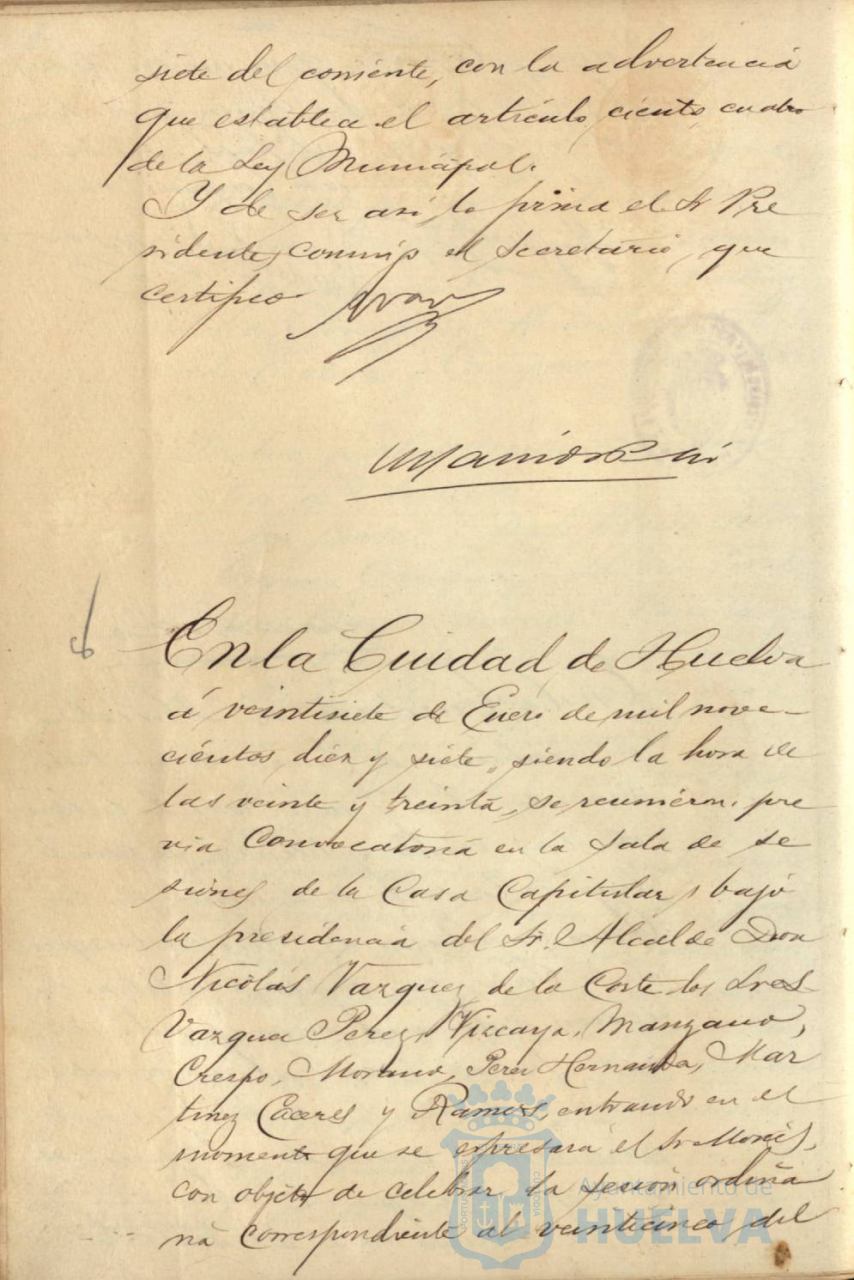 siete del corriente, con la advertencia
que establece el artículo ciento cuatro
de la Ley Municipal.
Y de ser así, lo firma el Sr Pre
sidente, conmigo el Secretario, que
certifico
En la Ciudad de Huelva
á veintisiete de Enero de mil nove-
cientos diez y siete, siendo la hora de
las veinte y treinta, se reunieron, pre
via convocatoria en la Sala de se
siones de la Casa Capitular, bajo
la presidencia del Sr. Alcalde Don
Nicolás Vazquez de la Corte los Sres
Vazquez Perez, Vizcaya, Manzano,
Crespo, Moreno, Perez Hernandez, Mar
tinez Cáceres y Ramos, entrando en el
momento que se expresará el Sr Monis,
con objeto de celebrar la sesión ordina
ria correspondiente al veinticinco del
Ayuntamiento de
HUELVA